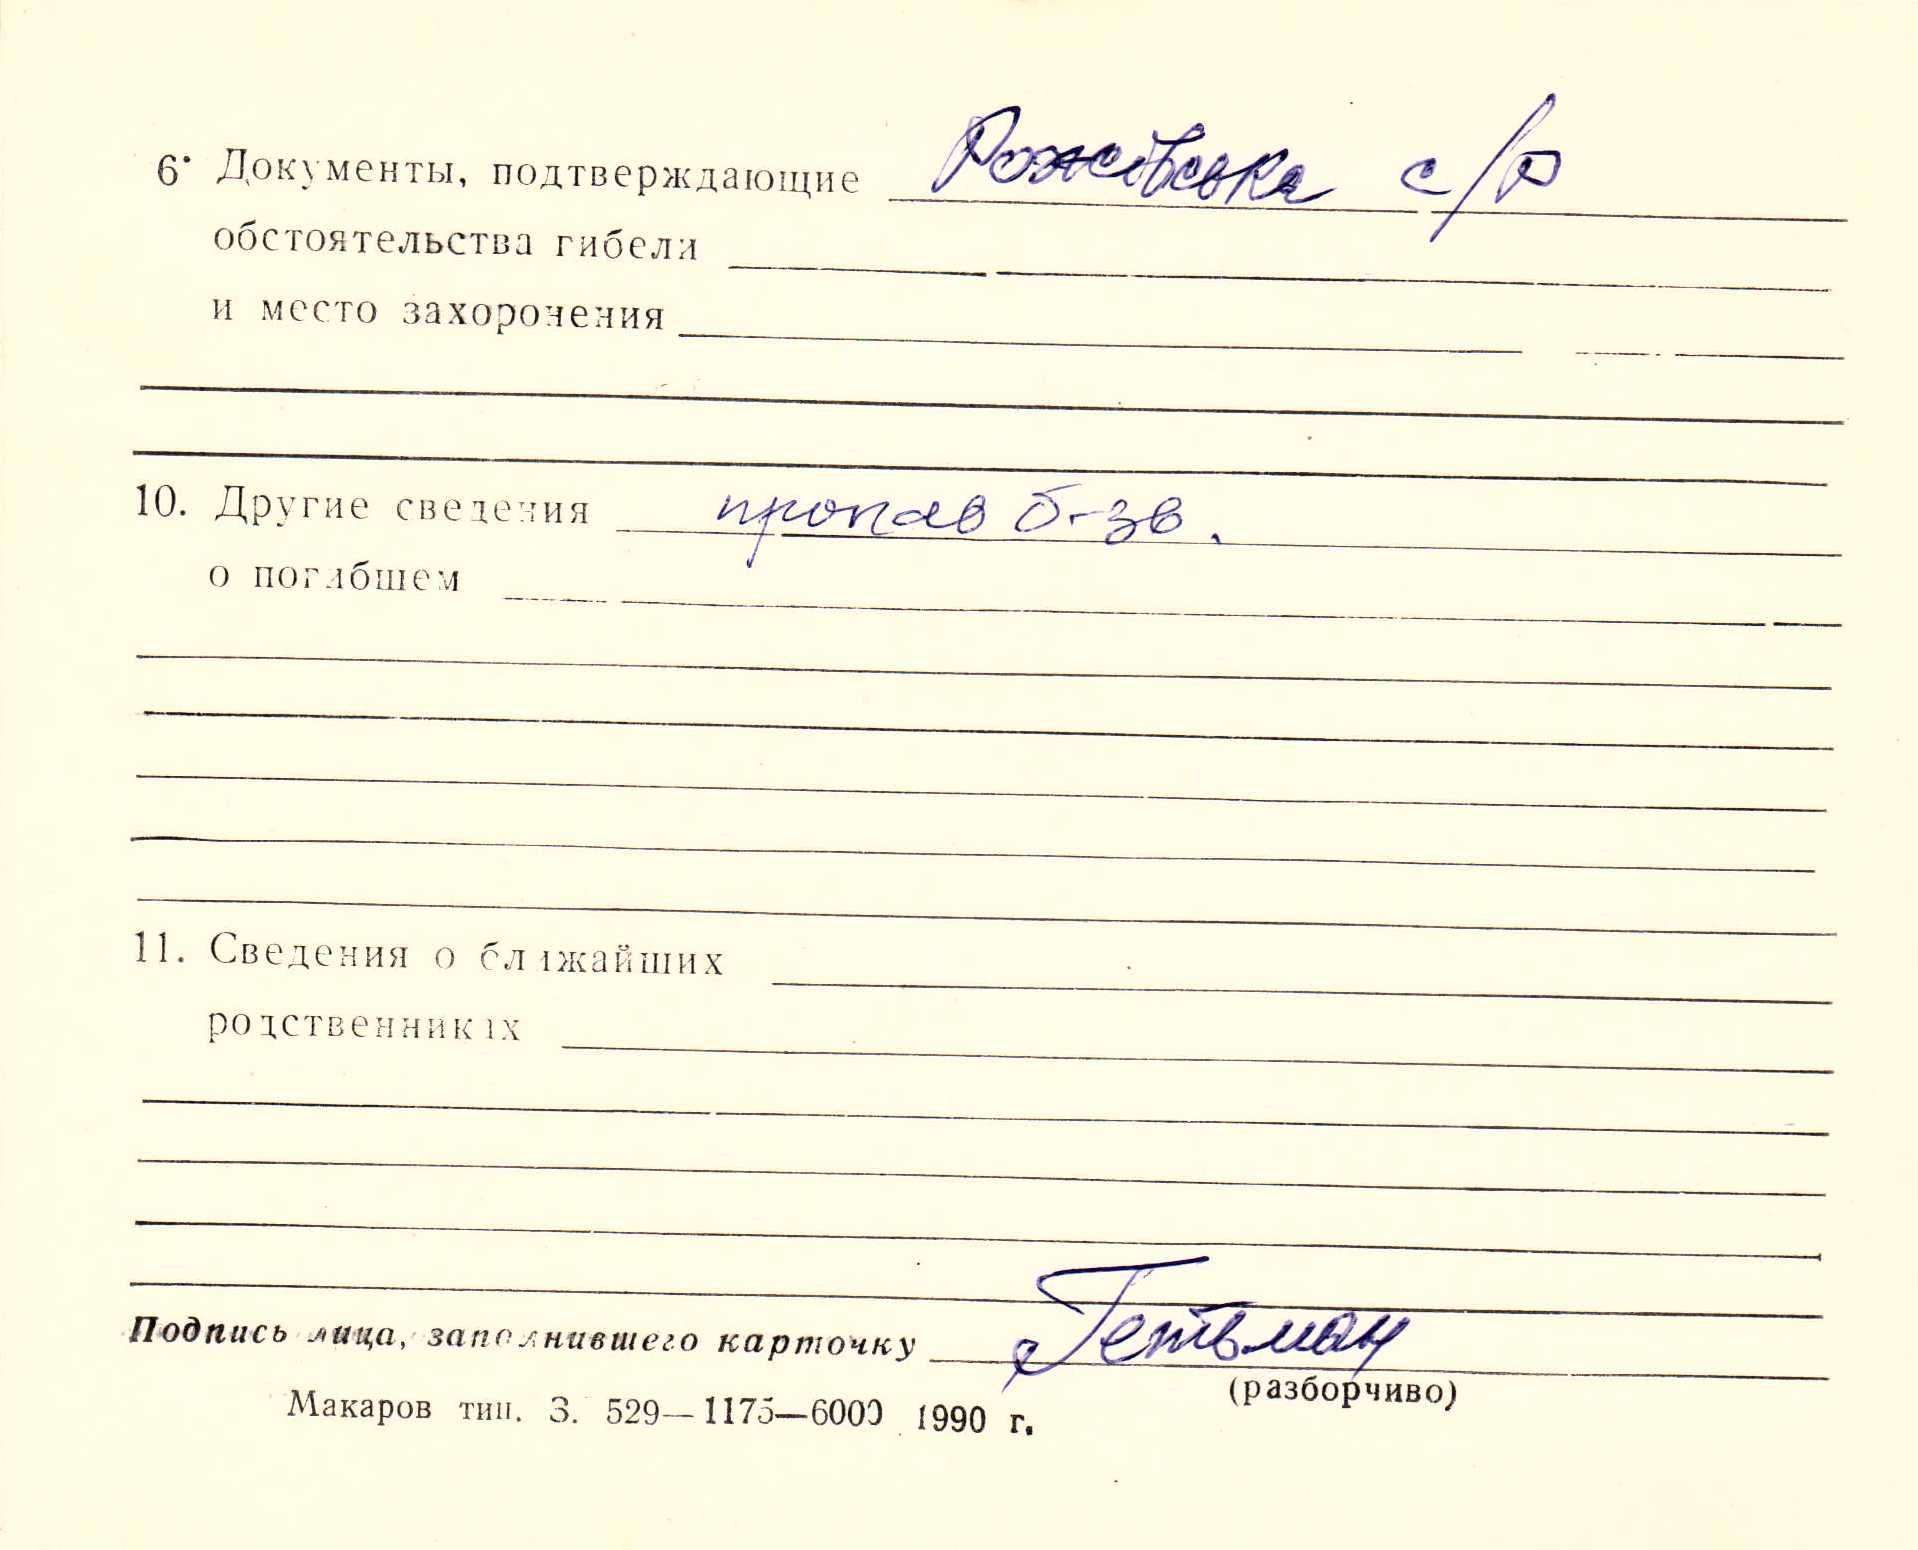 6. Документы, подтверждающие Рожівська с/Р
обстоятельства гибели
и место захоронения
10. Другие сведения пропав б-зв.
о погибшем
11. Сведения о ближайших
родственниках
Подпись лица, заполнившего карточку Гетьман
(разборчиво)
Макаров тип. З. 529—1175—6000 1990 г.